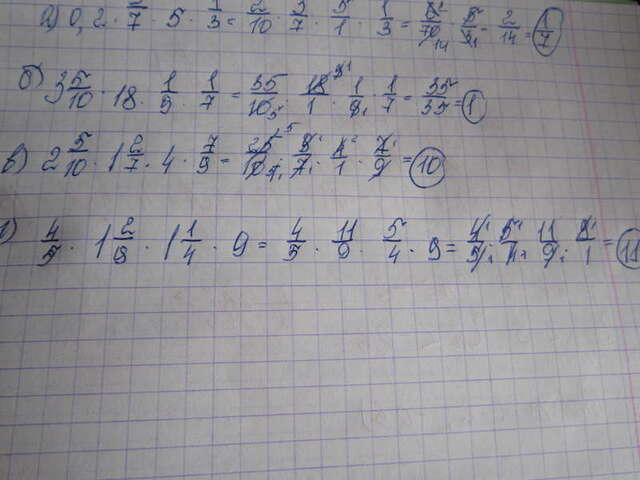 а) 0,2 · 3/7 · 5 · 1/3 = 2/10 · 3/7 · 5/1 · 1/3 = 2/14 = 1/7
б) 3 5/10 · 18 · 1/9 · 1/7 = 35/10 · 18/1 · 1/9 · 1/7 = 35/35 = 1
в) 2 5/10 · 1 2/7 · 4 · 7/9 = 25/10 · 9/7 · 4/1 · 7/9 = 10
г) 4/5 · 1 2/9 · 1 1/4 · 9 = 4/5 · 11/9 · 5/4 · 9 = 4/5 · 5/4 · 11/9 · 9/1 = 11